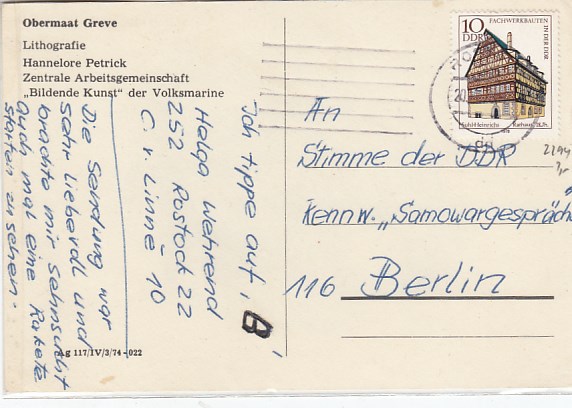 Obermaat Greve
Lithografie
Hannelore Petrick
Zentrale Arbeitsgemeinschaft
„Bildende Kunst" der Volksmarine
Ich tippe auf „B"
Helga Wehrend
252 Rostock 22
C. v. Linné 10
Die Sendung war
sehr liebevoll und
brachte mir Sehnsucht
auch mal eine Rakete
starten zu sehen.
Ag 117/IV/3/74-022
10
DDR
FACHWERKBAUTEN
IN DER DDR
Rathaus
20
An
Stimme der DDR
Kennw. „Samowargespräche
116 Berlin